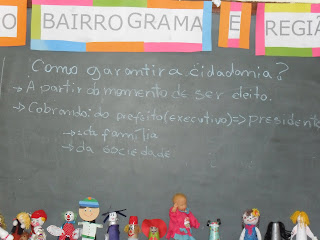 O BAIRRO GRAMA E REGIÃ
Como garantir a cidadania?
→ A partir do momento de ser eleito.
→ Cobrando: do prefeito (executivo) => presidente
→ da família
→ da sociedade